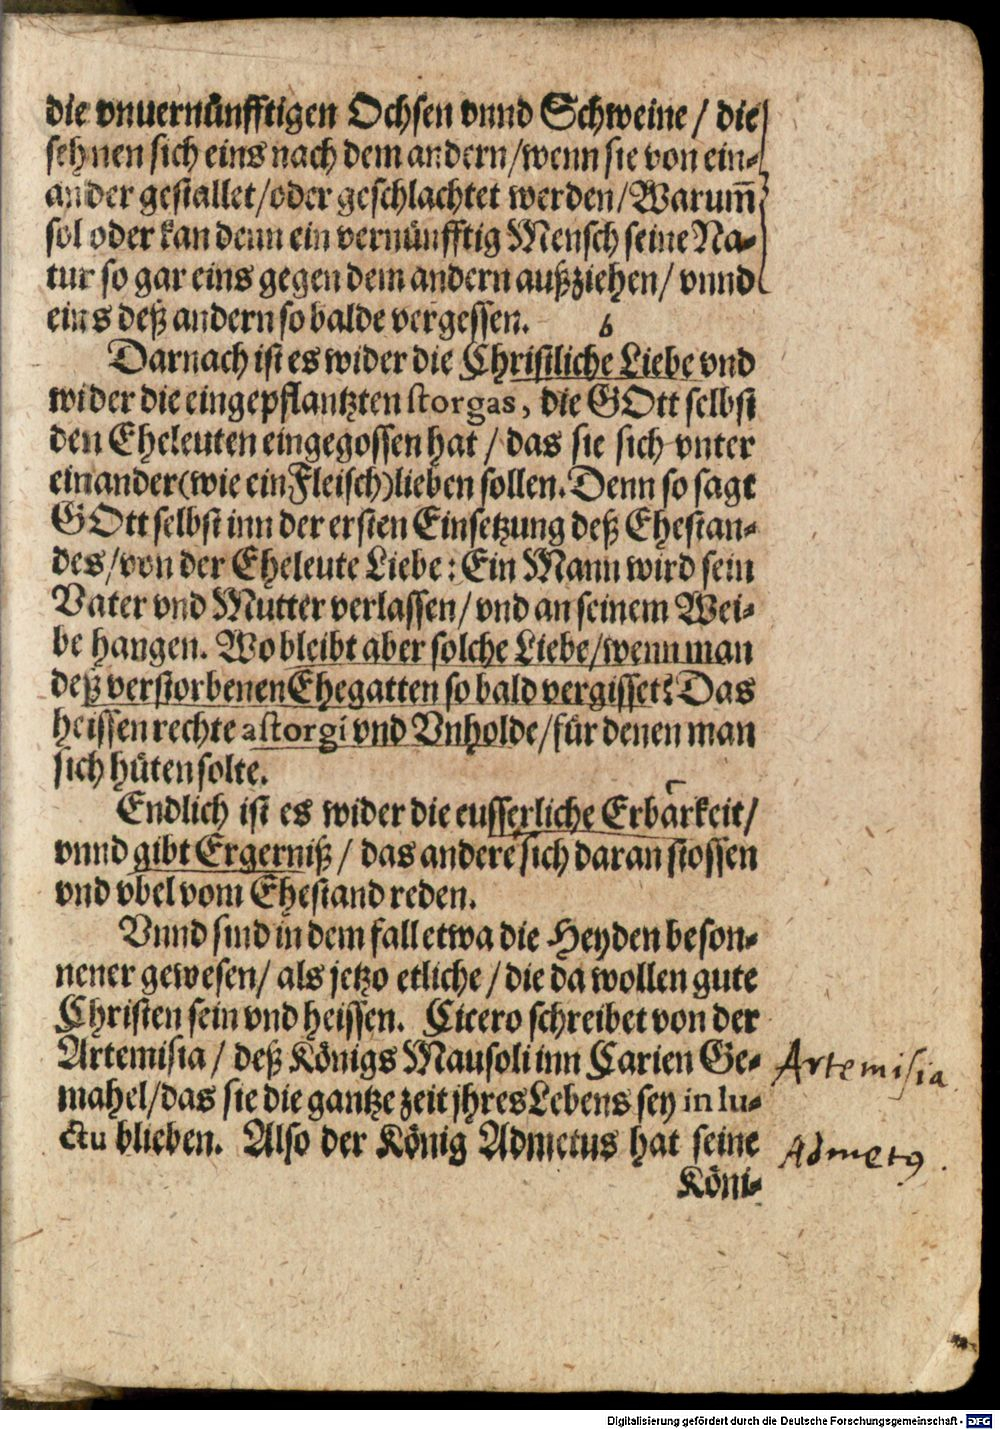 die vnuernünfftigen Ochsen vnnd Schweine / die
sehnen sich eins nach dem andern/wenn sie von ein-
ander gestallet/oder geschlachtet werden/Warum̃
sol oder kan denn ein vernünfftig Mensch seine Na-
tur so gar eins gegen dem andern außziehen/ vnnd
eins deß andern so balde vergessen.
Darnach ist es wider die Christliche Liebe vnd
wider die eingepflantzten storgas, die GOtt selbst
den Eheleuten eingegossen hat / das sie sich vnter
einander(wie ein Fleisch)lieben sollen. Denn so sagt
GOtt selbst inn der ersten Einsetzung deß Ehestan-
des/von der Eheleute Liebe: Ein Mann wird sein
Vater vnd Mutter verlassen/ vnd an seinem Wei-
be hangen. Wo bleibt aber solche Liebe/wenn man
deß verstorbenen Ehegatten so bald vergisset? Das
heissen rechte astorgi vnd Vnholde/für denen man
sich hüten solte.
Endlich ist es wider die eusserliche Erbarkeit/
vnnd gibt Ergerniß / das andere sich daran stossen
vnd vbel vom Ehestand reden.
Vnnd sind in dem fall etwa die Heyden beson-
nener gewesen/ als jetzo etliche / die da wollen gute
Christen sein vnd heissen. Cicero schreibet von der
Artemisia / deß Königs Mausoli inn Carien Ge-
mahel/das sie die gantze zeit jhres Lebens sey in lu-
ctu blieben. Also der König Admetus hat seine
Köni-
Artemisia
Admetus.
Digitalisierung gefördert durch die Deutsche Forschungsgemeinschaft - DFG